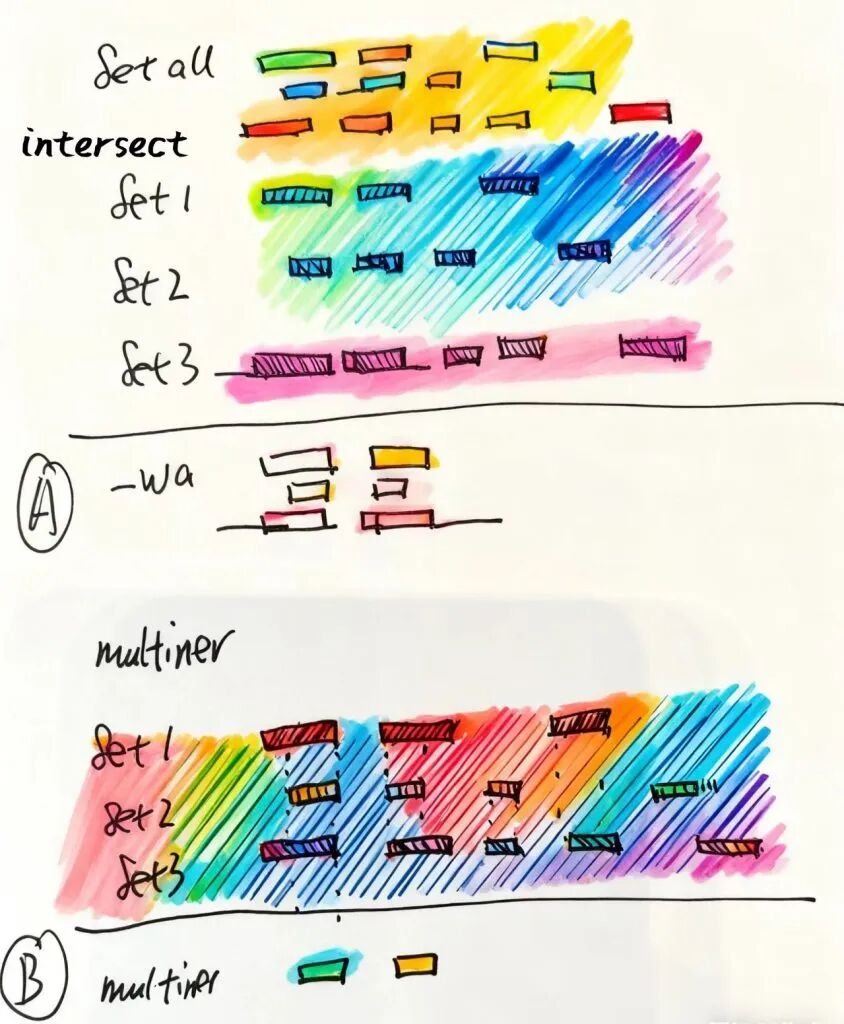 Set all
intersect
Set 1
Set 2
Set 3
A
-wa
multiner
Set 1
Set 2
Set 3
B
multiner